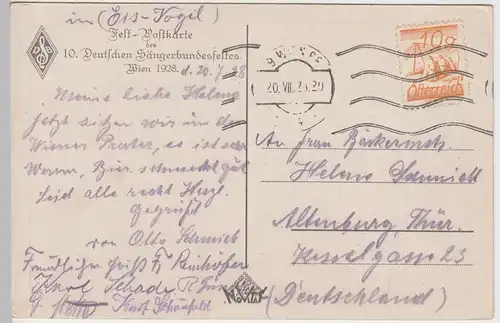 in (Eis-Vogel)
Fest-Postkarte
des
10. Deutschen Sängerbundesfestes
Wien 1928. d. 20./7. 28
Meine liebe Helene
jetzt sitzen wir in der
Wiener Prater, es ist sehr
Warm, Bier schmeckt gut
Seid alle recht Herzl.
Gegrüßt
von Otto Schmidt
Karl Schade
Kurt Schönfeld
NOVITAS
20. VII. 28
10g
Österreich
An Frau Bäckermstr.
Helene Schmidt
Altenburg, Thür.
Kesselgasse 23
(Deutschland)